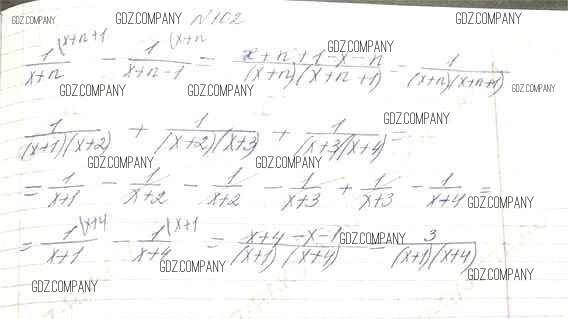 GDZ.COMPANY GDZ.COMPANY N102 GDZ.COMPANY
1\x+n+1 / x+n - 1\x+n / x+n-1 = x+n+1-x-n / (x+n)(x+n+1) - 1 / (x+n)(x+n+1)
GDZ.COMPANY
GDZ.COMPANY GDZ.COMPANY GDZ.COMPANY GDZ.COMPANY
1/(x+1)(x+2) + 1/(x+2)(x+3) + 1/(x+3)(x+4) =
GDZ.COMPANY GDZ.COMPANY
GDZ.COMPANY GDZ.COMPANY
= 1/x+1 - 1/x+2 - 1/x+2 - 1/x+3 + 1/x+3 - 1/x+4 =
GDZ.COMPANY
= 1\x+4 / x+1 - 1\x+1 / x+4 = x+4-x-1 / (x+1)(x+4) = 3 / (x+1)(x+4)
GDZ.COMPANY
GDZ.COMPANY GDZ.COMPANY
GDZ.COMPANY